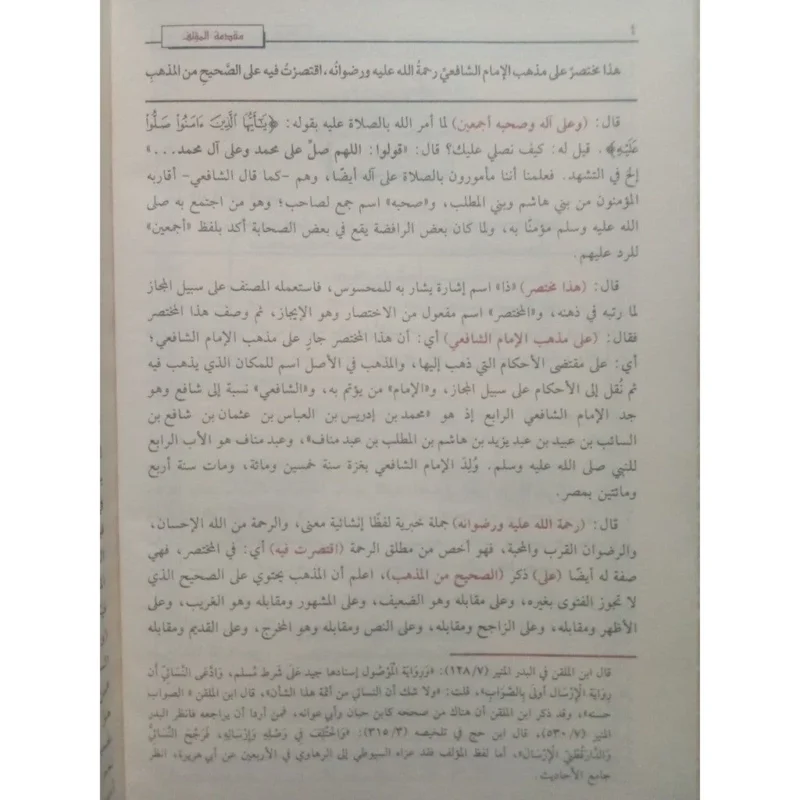 ٤
مقدمة المؤلف
هذا مختصرٌ على مذهب الإمام الشافعيِّ رحمةُ الله عليه ورضوانُه، اقتصرْتُ فيه على الصَّحيحِ من المذهبِ
قال: (وعلى آله وصحبه أجمعين) لما أمر الله بالصلاة عليه بقوله: ﴿يَٰٓأَيُّهَا ٱلَّذِينَ ءَامَنُوا۟ صَلُّوا۟
عَلَيْهِ﴾. قيل له: كيف نصلي عليك؟ قال: «قولوا: اللهم صلِّ على محمد وعلى آل محمد...»
إلخ في التشهد. فعلمنا أننا مأمورون بالصلاة على آله أيضًا، وهم -كما قال الشافعي- أقاربه
المؤمنون من بني هاشم وبني المطلب، و«صحبه» اسم جمع لصاحب؛ وهو من اجتمع به صلى
الله عليه وسلم مؤمنًا به، ولما كان بعض الرافضة يقع في بعض الصحابة أكد بلفظ «أجمعين»
للرد عليهم.
قال: (هذا مختصر) «ذا» اسم إشارة يشار به للمحسوس، فاستعمله المصنف على سبيل المجاز
لما رتبه في ذهنه، و«المختصر» اسم مفعول من الاختصار وهو الإيجاز، ثم وصف هذا المختصر
فقال: (على مذهب الإمام الشافعي) أي: أن هذا المختصر جارٍ على مذهب الإمام الشافعي؛
أي: على مقتضى الأحكام التي ذهب إليها، والمذهب في الأصل اسم للمكان الذي يذهب فيه
ثم نُقل إلى الأحكام على سبيل المجاز، و«الإمام» من يؤتم به، و«الشافعي» نسبة إلى شافع وهو
جد الإمام الشافعي الرابع إذ هو «محمد بن إدريس بن العباس بن عثمان بن شافع بن
السائب بن عبيد بن عبد يزيد بن هاشم بن المطلب بن عبد مناف»، وعبد مناف هو الأب الرابع
للنبي صلى الله عليه وسلم. وُلِدَ الإمام الشافعي بغزة سنة خمسين ومائة، ومات سنة أربع
ومائتين بمصر.
قال: (رحمة الله عليه ورضوانه) جملة خبرية لفظًا إنشائية معنى، والرحمة من الله الإحسان،
والرضوان القرب والمحبة، فهو أخص من مطلق الرحمة (اقتصرت فيه) أي: في المختصر، فهي
صفة له أيضًا (على) ذكر (الصحيح من المذهب)، اعلم أن المذهب يحتوي على الصحيح الذي
لا تجوز الفتوى بغيره، وعلى مقابله وهو الضعيف، وعلى المشهور ومقابله وهو الغريب، وعلى
الأظهر ومقابله، وعلى الراجح ومقابله، وعلى النص ومقابله وهو المخرج، وعلى القديم ومقابله
قال ابن الملقن في البدر المنير (١٢٨/٧): «وَرِوَايَة الْمَوْصُول إسنادها جيد عَلَى شَرط مُسلم، وَادَّعَى النَّسَائِيّ أَن
رِوَايَة الْإِرْسَال أولَى بِالصَّوَابِ»، قلت: «ولا شك أن النسائي من أئمة هذا الشأن»، قال ابن الملقن «الصواب
حسنه»، وقد ذكر ابن الملقن أن هناك من صححه كابن حبان وأبي عوانه، فمن أردا أن يراجعه فانظر البدر
المنير (٥٣٠/٧)، قال ابن حج في تلخيصه (٣١٥/٣): «وَاخْتُلِفَ فِي وَصْلِهِ وَإِرْسَالِهِ، فَرَجَّحَ النَّسَائِيُّ
وَالدَّارَقُطْنِيُّ الْإِرْسَالَ»، أما لفظ المؤلف فقد عزاه السيوطي إلى الرهاوي في الأربعين عن أبي هريرة، انظر
جامع الأحاديث.